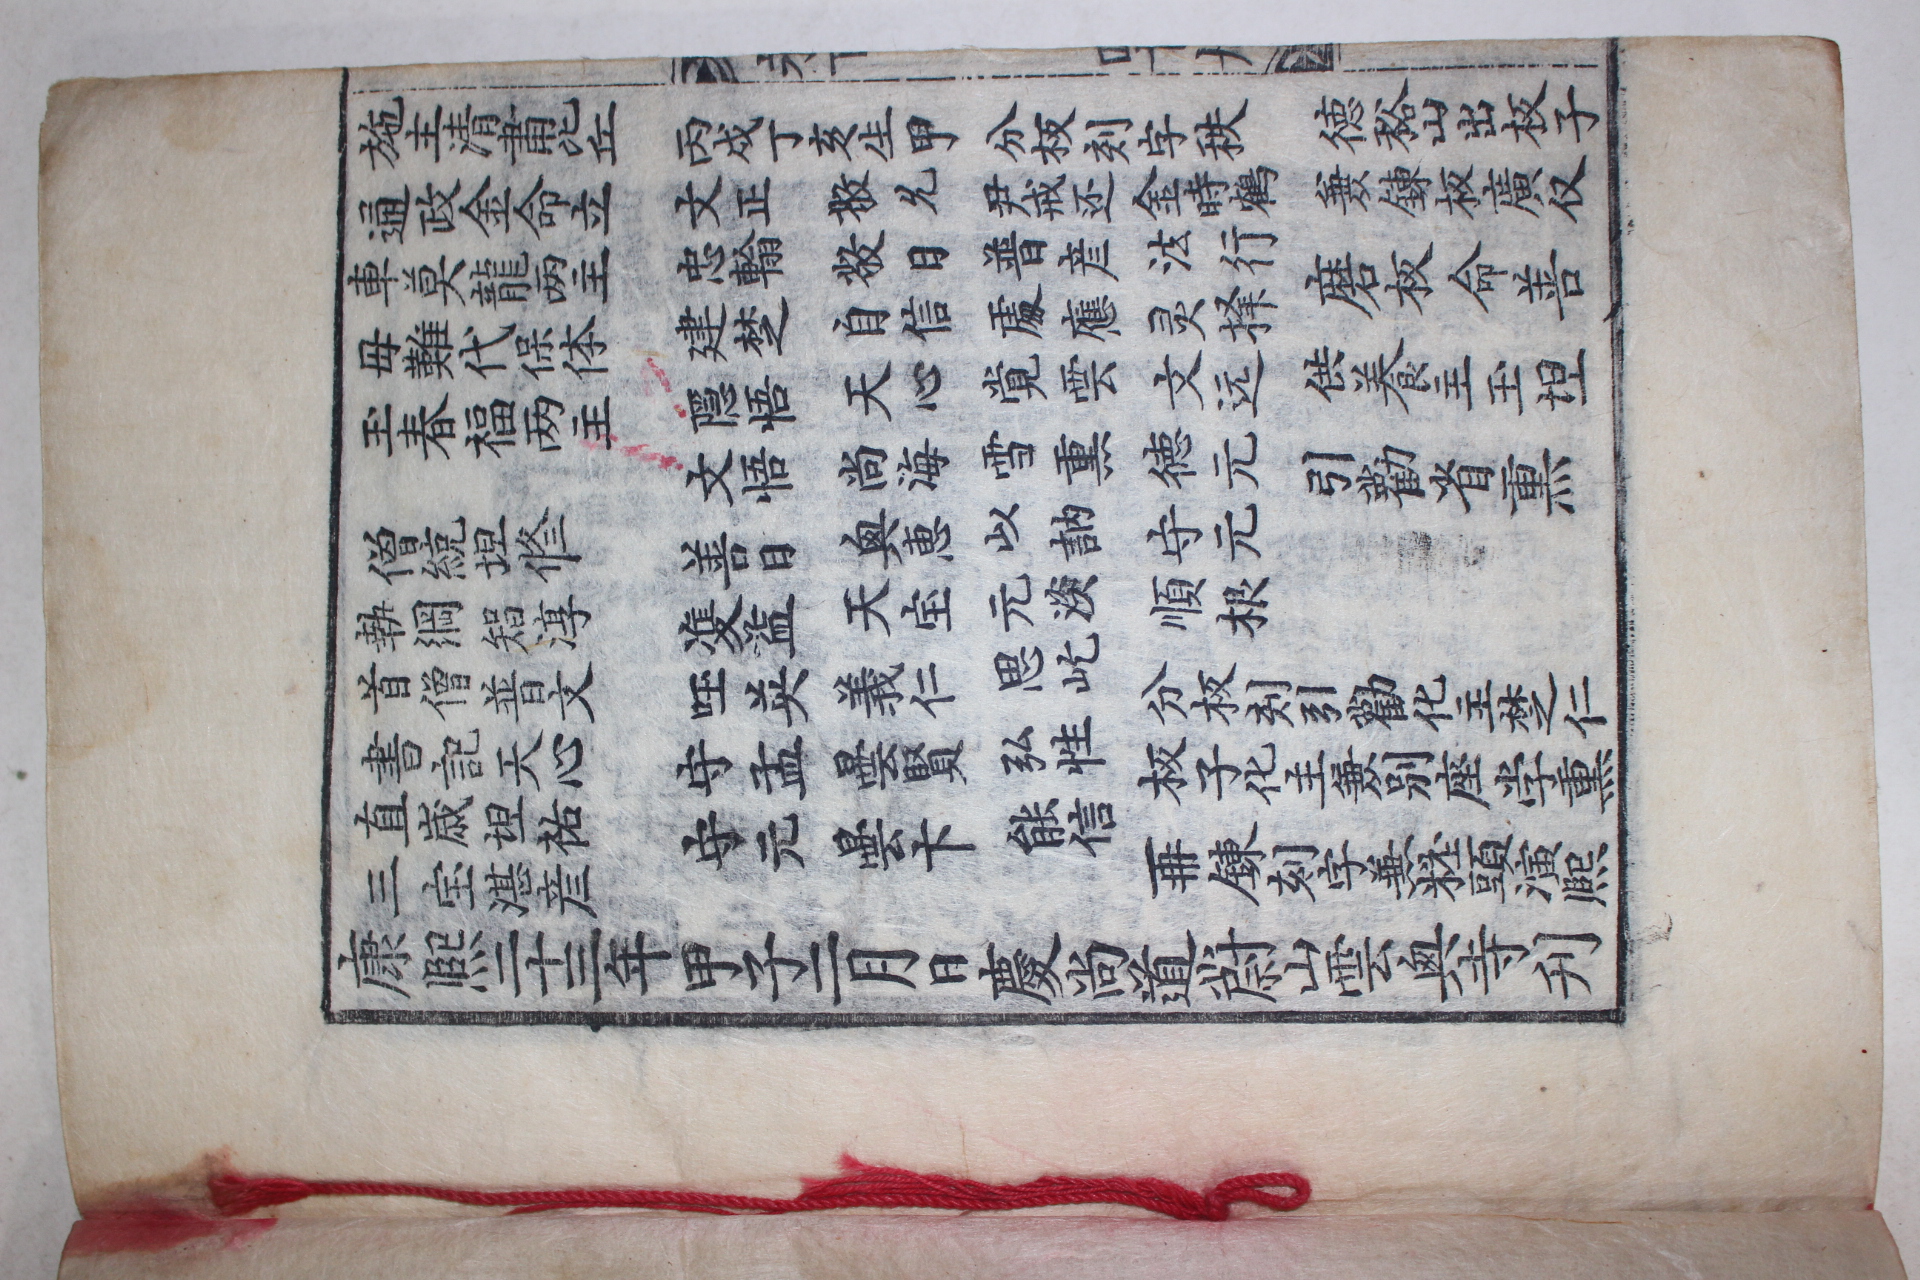 施主清書比丘 丙戍丁亥生甲 分板刻字秩 德裕山出板子
通政金命立 文正 敬允 尹戒还 金時鶴 兼鍊板廣仅
車莫龍两主 忠翰 敬日 普彦 法行 磨板命善
毋難代保体 建楚 自信 處應 灵择
玉春福两主 隱悟 天心 覚雲 文远 供养主玉坦
文悟 尚海 雪熏 德元 引勸省熏
僧統坦修 善日 奥惠 以訥 守元
執綱智淳 雙益 天宝 元淡 順根
首僧普文 旺英 義仁 思屹 分板刻引勸化主楚仁
書記天心 守孟 曇賢 弘性 板子化主兼别座学熏
直歳坦祐 守元 曇卞 能信 冊鍊刻字無粧頭演熙
三宝湛彦
康熙二十三年甲子二月日慶尚道蔚山雲奥寺刊